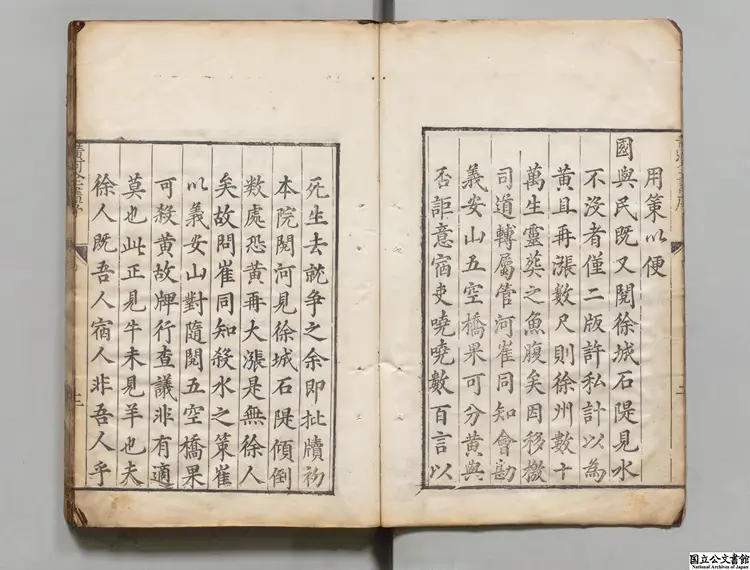 用策以便
國與民既又閱徐城石隄見水
不沒者僅二版許私計以為
黃且再漲數尺則徐州數十
萬生靈葬之魚腹矣因移檄
司道轉屬管河崔同知會勘
義安山五空橋果可分黃與
否詎意宿吏嘵嘵數百言以
死生去就爭之余即批牘初
本院閱河見徐城石隄傾倒
數處恐黃再大漲是無徐人
矣故問崔同知殺水之策崔
以義安山對隨閱五空橋果
可殺黃故牌行查議非有適
莫也此正見牛未見羊也夫
徐人既吾人宿人非吾人乎
二
三
国立公文書館
National Archives of Japan